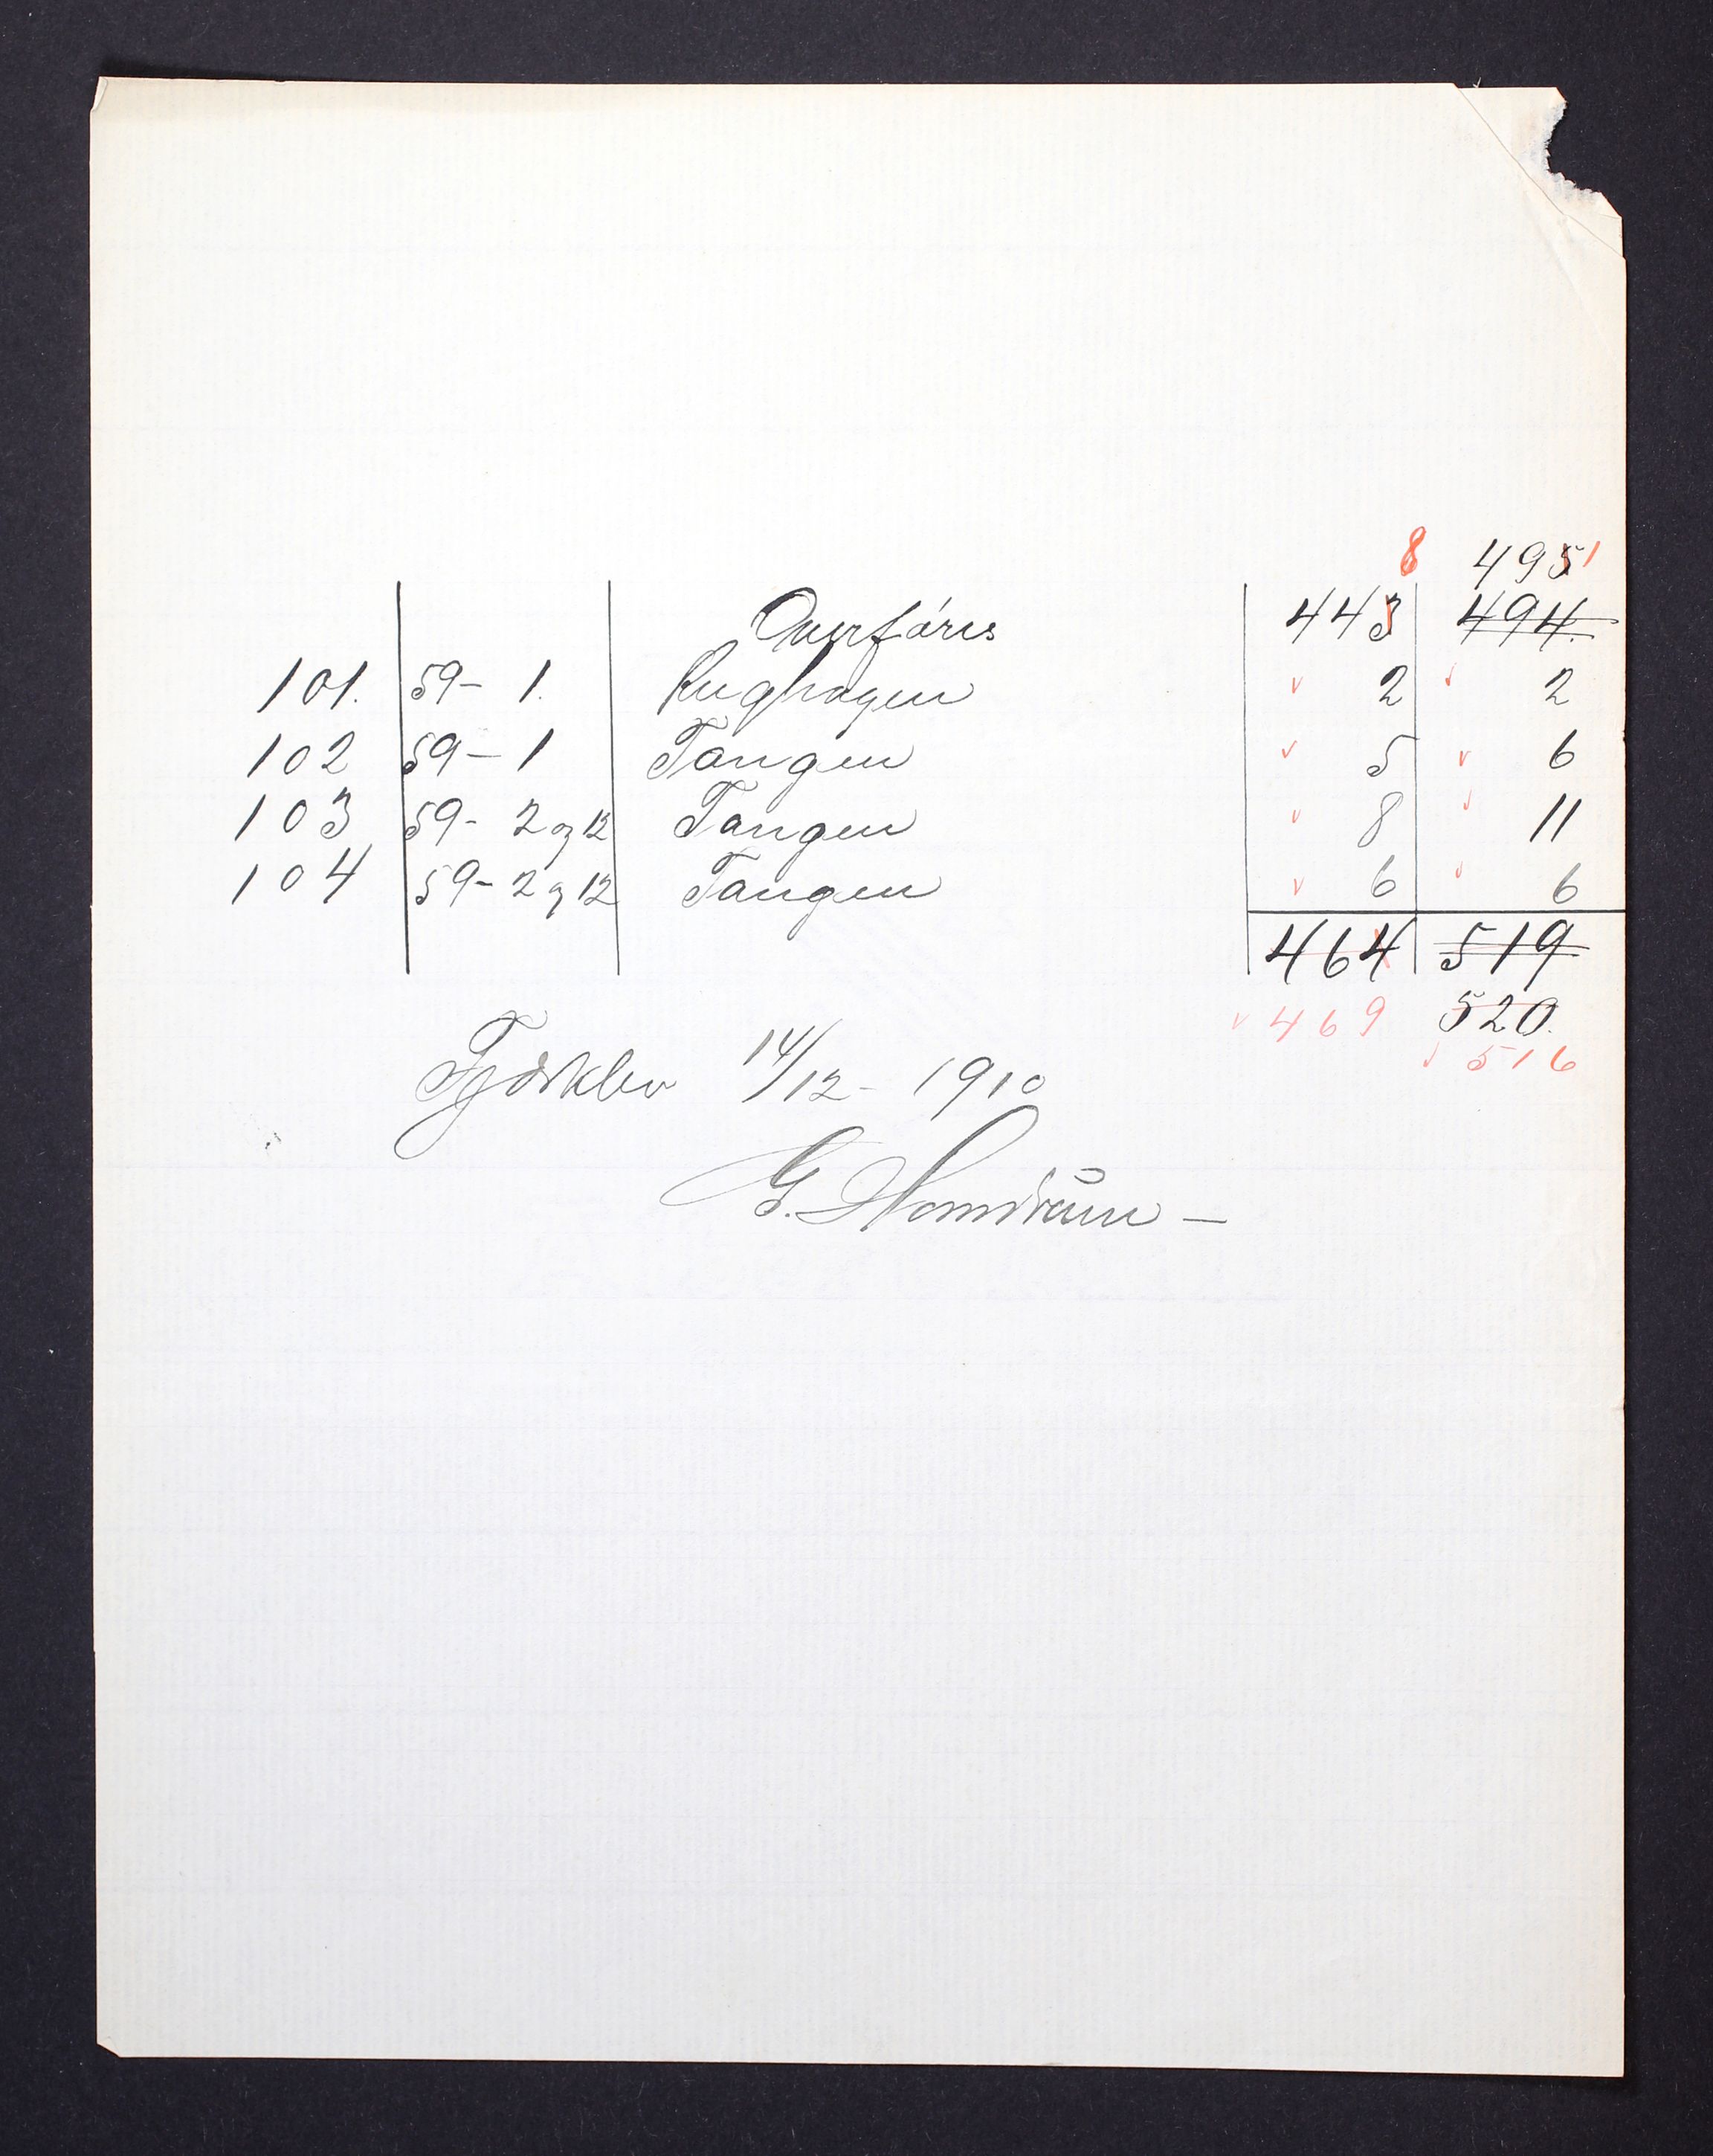 8 495 1
Overføres 443 494.
101. 59- 1. Rughagen v 2 v 2
102 59- 1 Tangen v 5 v 6
103 59- 2 og 12 Tangen v 8 v 11
104 59- 2 og 12 Tangen v 6 v 6
464 519
v 469 520.
v 516
14/12- 1910
G. Homdrum -